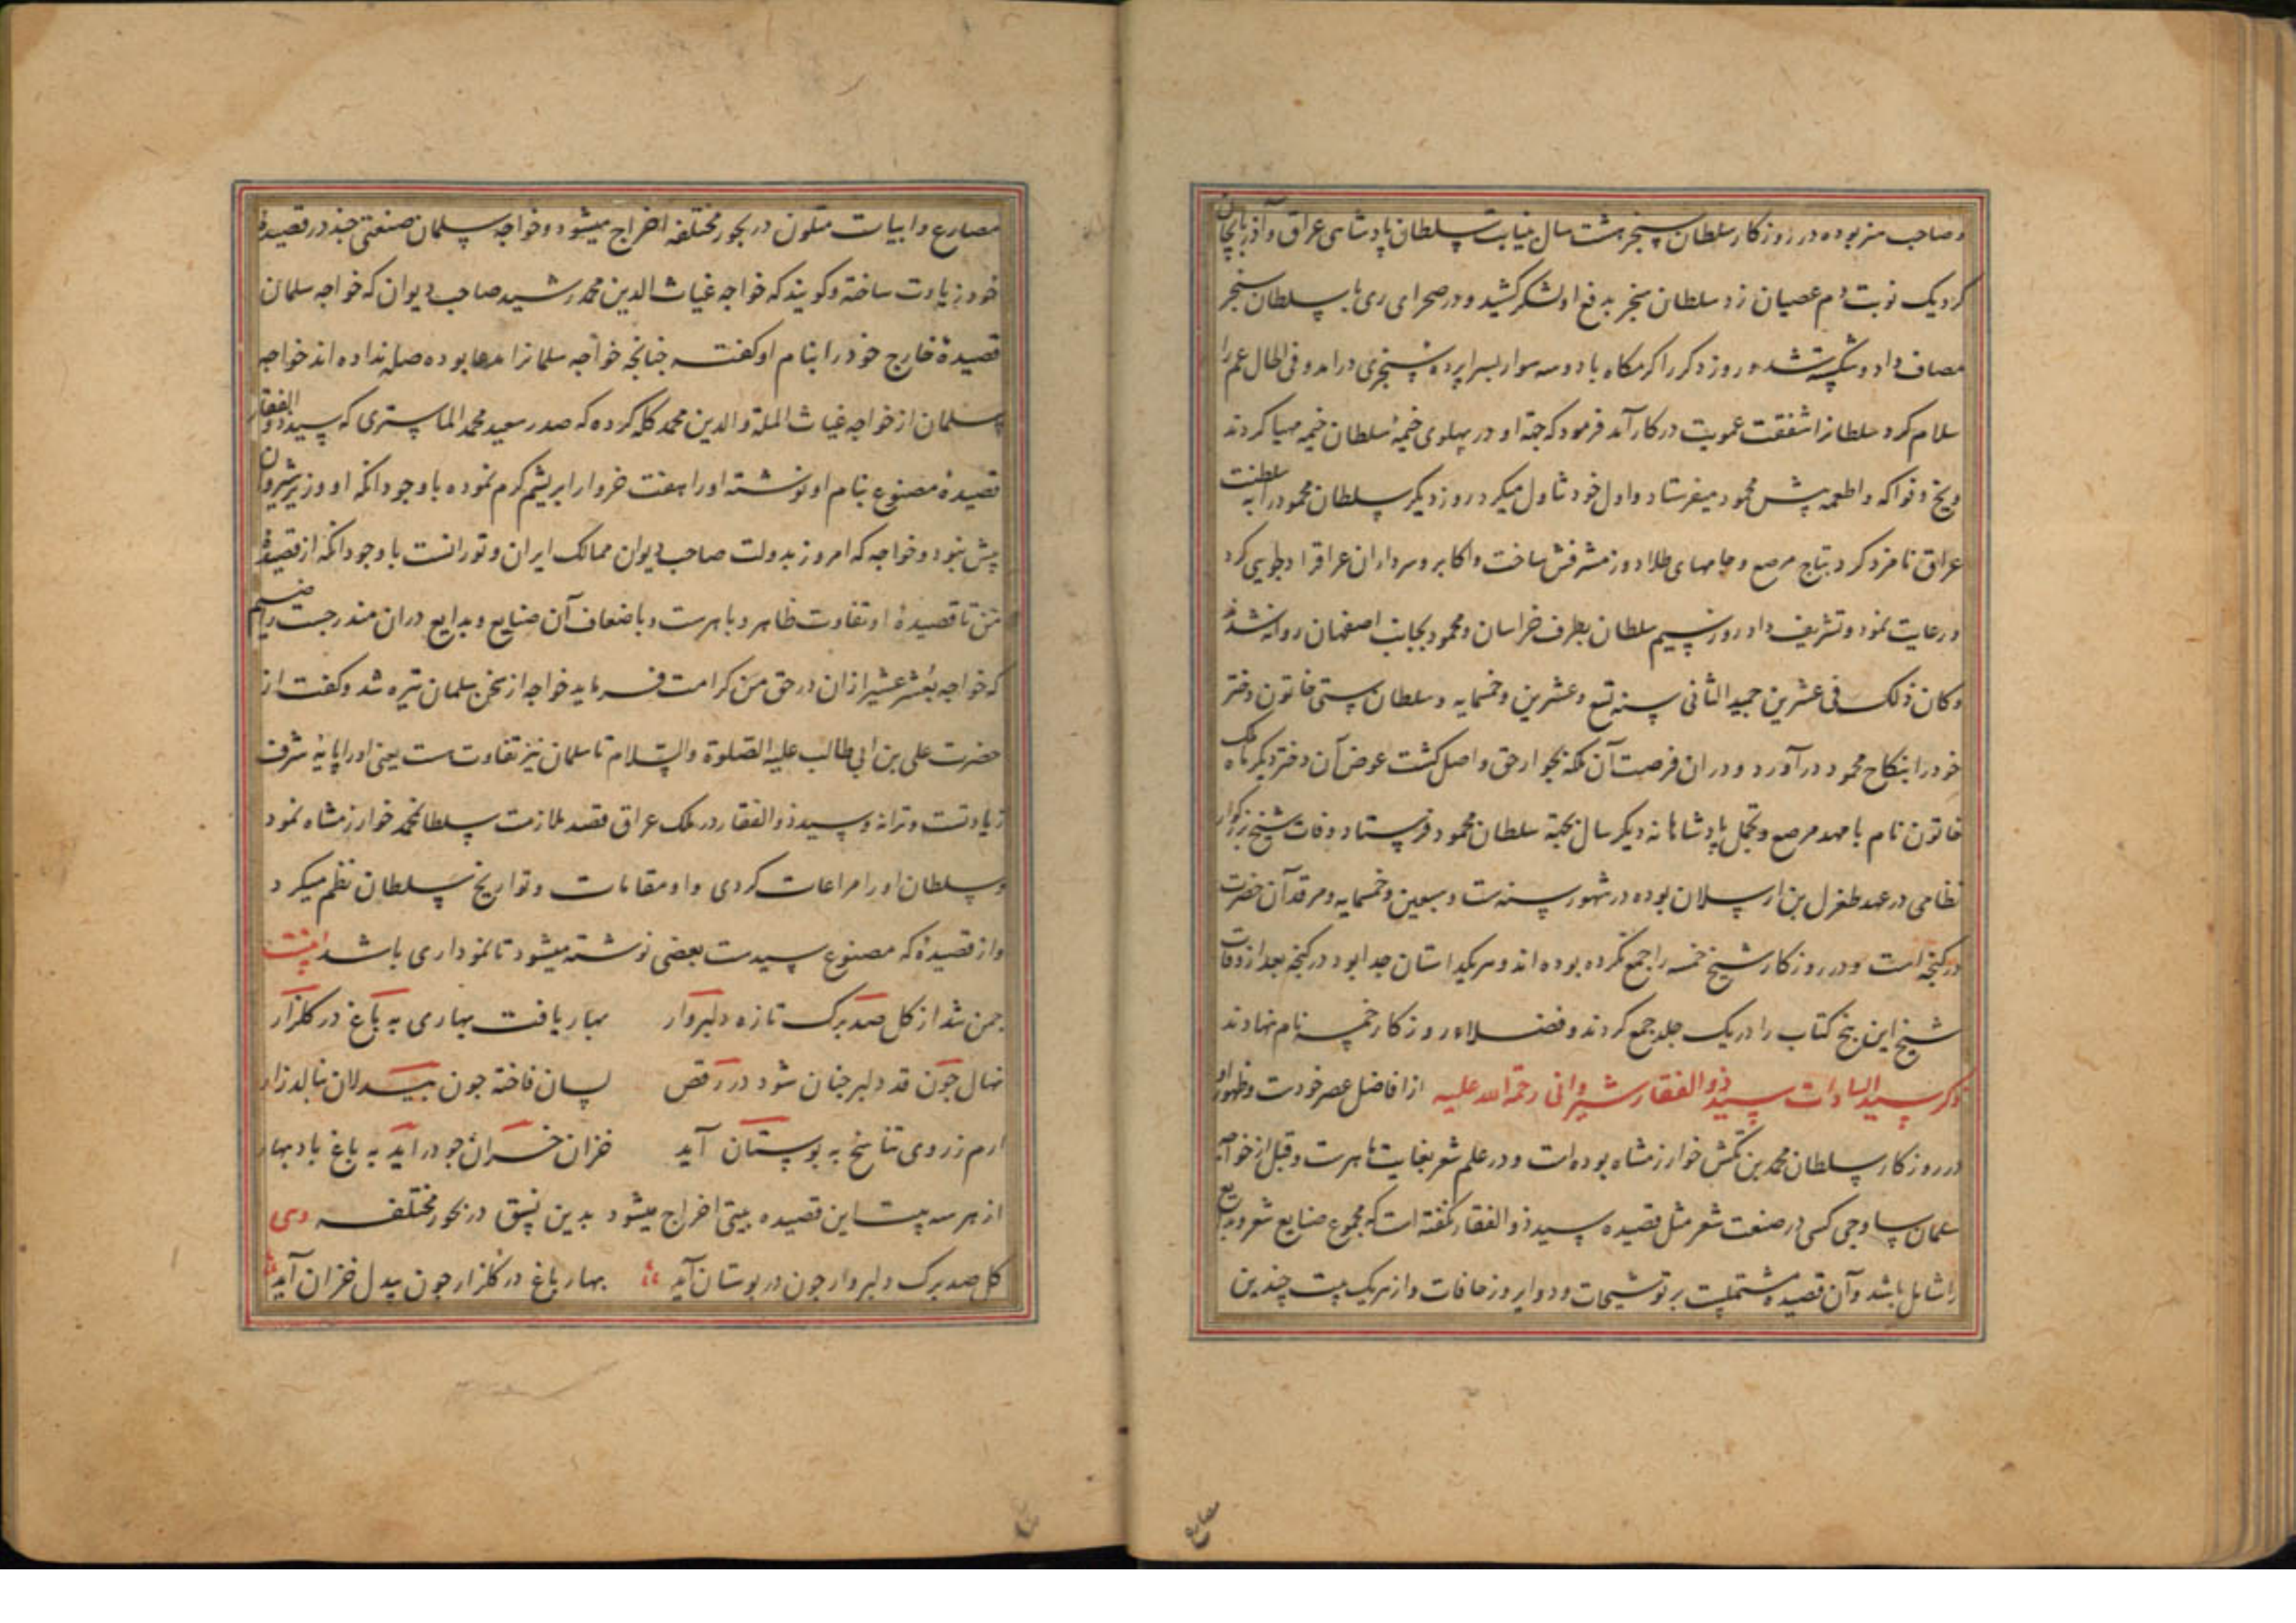 و صاحب هنر بوده در روزكار سلطان سنجر هشت سال بنیابت سلطان پادشاهی عراق و آذربایجان
كرد یک نوبت دم عصیان زد سلطان سنجر بدفع او لشکر کشید و در صحرای ری با سلطان سنجر
مصاف داد و شکسته شد و روز دکر راكرمكاه با دو سه سوار بسراپرده سنجری درامد و فی الحال عم را
سلام كرد سلطانرا شفقت عمویت در كار آمد فرمود كه جهة او در پهلوی خیمهٔ سلطان خیمه مهیا كردند
و یخ و فواكه و اطعمه پیش محمود میفرستاد و اول خود تناول میكرد روز دیكر سلطان محمود را به سلطنت
عراق نامزد كرد بتاج مرصع و جامهای طلا دوز مشرفش ساخت و اكابر و سرداران عراقرا دلجویی كرد
و رعایت نمود و تشریف داد روز سیم سلطان بطرف خراسان و محمود بجانب اصفهان روانه شدند
و كان ذلک فی عشرین جمید الثانی سنه تسع و عشرین و خمسمایه و سلطان ستی خاتون دختر
خود را بنكاح محمود در آورد و در ان فرصت آن ملكه بجوار حق واصل كشت عوض آن دختر دیكر ماه ملک
خاتون نام با مهد مرصع و تجمل پادشاهانه دیكر سال بجهة سلطان محمود فرستاد و وفات شیخ بزرکوار
نظامی در عهد طغرل بن ارسلان بوده در شهور سنه ست و سبعین و خمسمایه و مرقد آن حضرت
در كنجه است و در روزكار شیخ خمسه را جمع نكرده بوده اند و هر یک داستان جدا بود در كنجه بعد از وفات
شیخ این پنج كتاب را در یک جلد جمع كردند و فضلاء روزكار خمسه نام نهادند
ذكر سید السادات سید ذو الفقار شیروانی رحمة الله علیه از افاضل عصر خودست و ظهور او
در روزكار سلطان محمد بن تكش خوارزمشاه بوده است و در علم شعر بغایت ماهرست و قبل از خواجه
سلمان ساوجی كسی در صنعت شعر مثل قصیده سید ذو الفقار نكفته است كه مجموع صنایع شعر و بدایع
را شامل باشد و آن قصیده مشتملست بر توشیحات و دوایر و زحافات و از هر یک بیت چندین
مصارع
مصارع و ابیات متلون در بحور مختلفه اخراج میشود و خواجه سلمان صنعتی چند در قصیده
خود زیادت ساخته و كویند كه خواجه غیاث الدین محمد رشید صاحب دیوان كه خواجه سلمان
قصیدهٔ خارج خود را بنام او كفته چنانچه خواجه سلمانرا مدعا بوده صله نداده اند خواجه
سلمان از خواجه غیاث الملة و الدین محمد كله كرده كه صدر سعید محمد الماستری كه سید ذو الفقار
قصیدهٔ مصنوع بنام او نوشته او را هفت خروار ابریشم كرم نموده با وجود انكه او وزیر شیروان
بیش نبود و خواجه كه امروز بدولت صاحب دیوان ممالک ایران و تورانست با وجود انكه از قصیدهٔ
من تا قصیدهٔ او تفاوت ظاهر و باهرست و باضعاف آن صنایع و بدایع دران مندرجست راضیم
كه خواجه بعُشر عشیر ازان در حق من كرامت فرماید خواجه از سخن سلمان تیره شد و كفت از
حضرت علی بن ابی طالب علیه الصلوة والسلام تا سلمان نیز تفاوتست یعنی او را پایهٔ شرف
زیادتست و ترا نه و سید ذو الفقار در ملک عراق قصد ملازمت سلطان محمد خوارزمشاه نمود
و سلطان او را مراعات كردی و او مقامات و تواریخ سلطان نظم میكرد
و از قصیدهٔ كه مصنوع سیدست بعضی نوشته میشود تا نموداری باشد اینست
چمن شد از كل صد برک تازه دلبروار بهار یافت بهاری به باغ در كلزار
نهال چون قد دلبر چنان شود در رقص بسان فاخته چون بیدلان بنالد زار
ارم ز روی تناسخ به بوستان آید خزان خسران چو درآید به باغ باد بهار
از هر سه بیت این قصیده بیتی اخراج میشود بدین نسق در بحور مختلفه وهی
كل صد برک دلبروار چون در بوستان آید بهار باغ در كلزار چون بیدل خزان آید